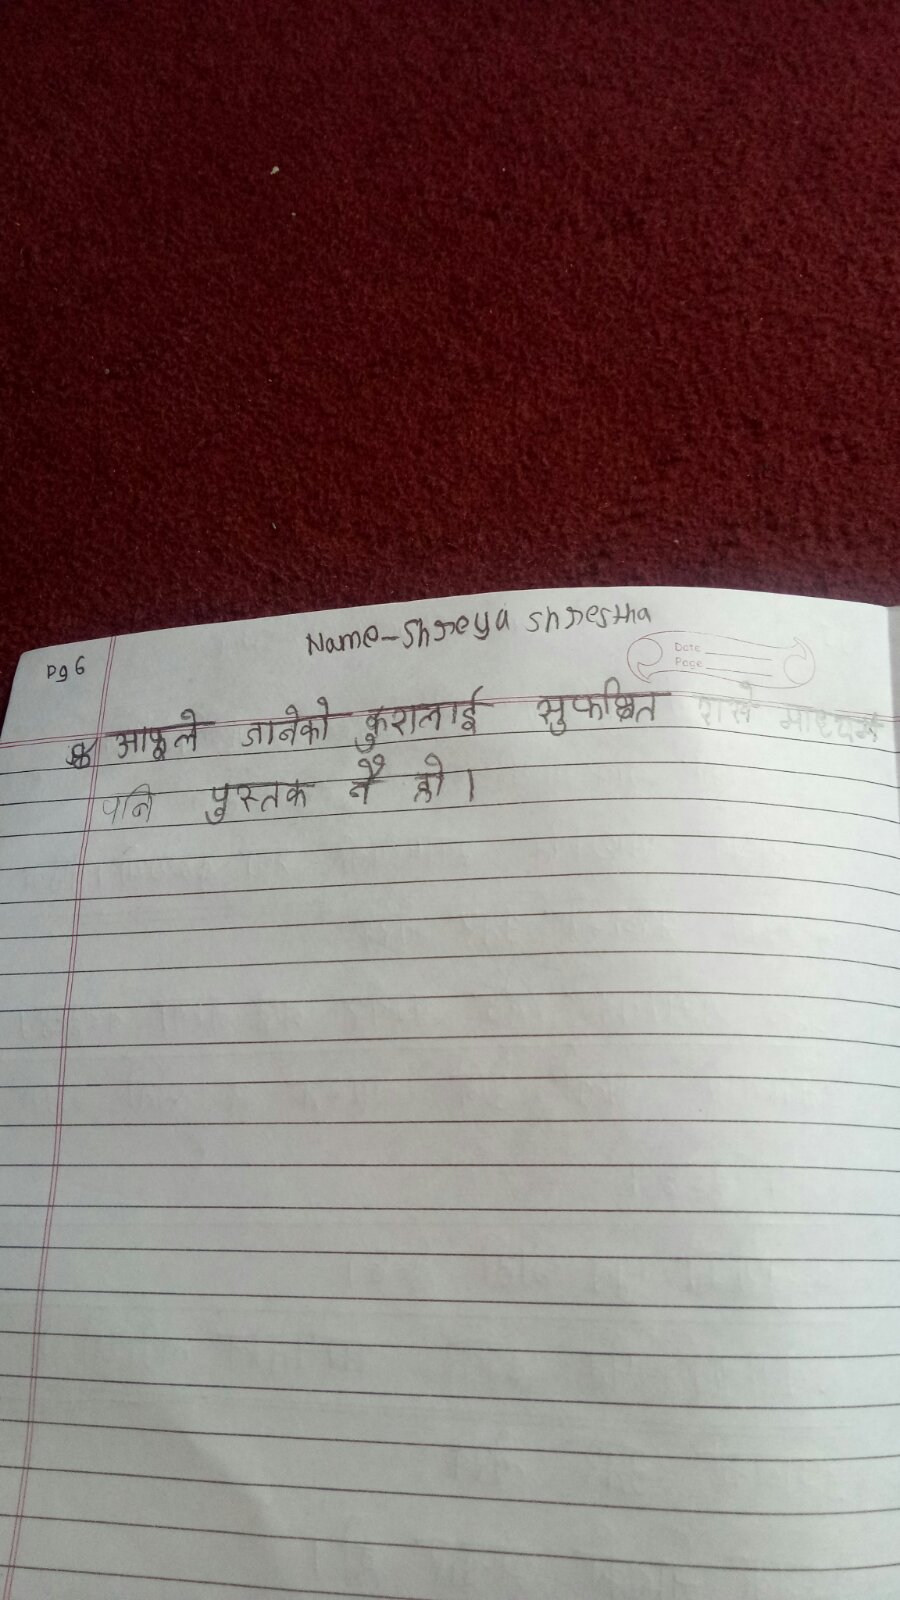 Name-Shreya Shrestha
pg 6
Date
Page
आफूले जानेको कुरालाई सुरक्षित राख्ने माध्यम
पनि पुस्तक नै हो।